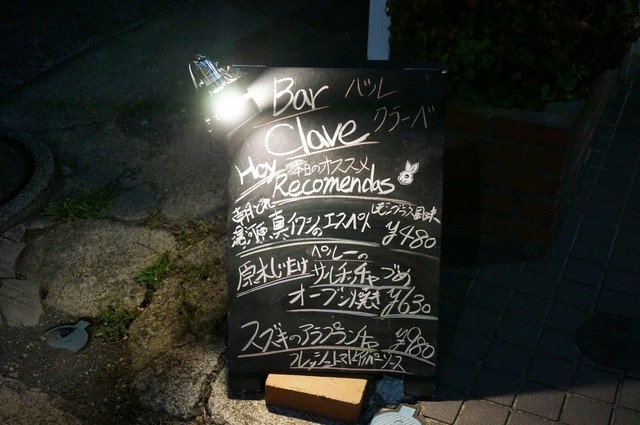 Bar バル
Clave クラーベ
Hoy 本日のオススメ
Recomendas
朝どれ レモンプラス風味
湯河原真イワシのエスペト ¥480
原木しいたけ ペルーの
サルチッチャづめ
オーブン焼き ¥630
スズキのアラプランチャ ¥980
フレッシュトマトとケイパーソース